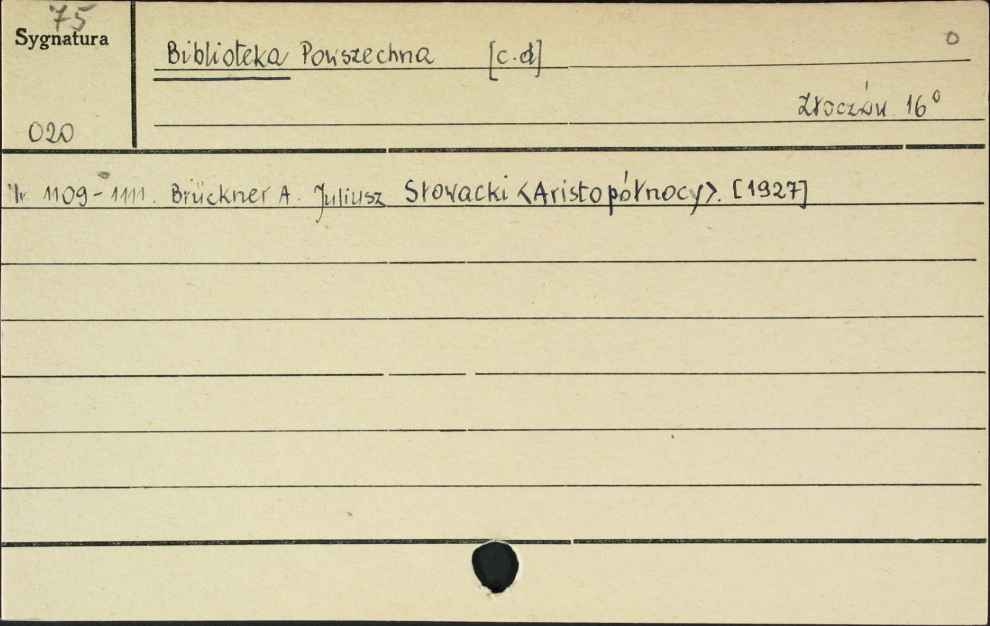 75
Sygnatura
Biblioteka Powszechna [c.d]
o
Złoczów 16°
020
Nr. 1109-1111. Brückner A. Juliusz Słowacki <Aristo północy>. [1927]